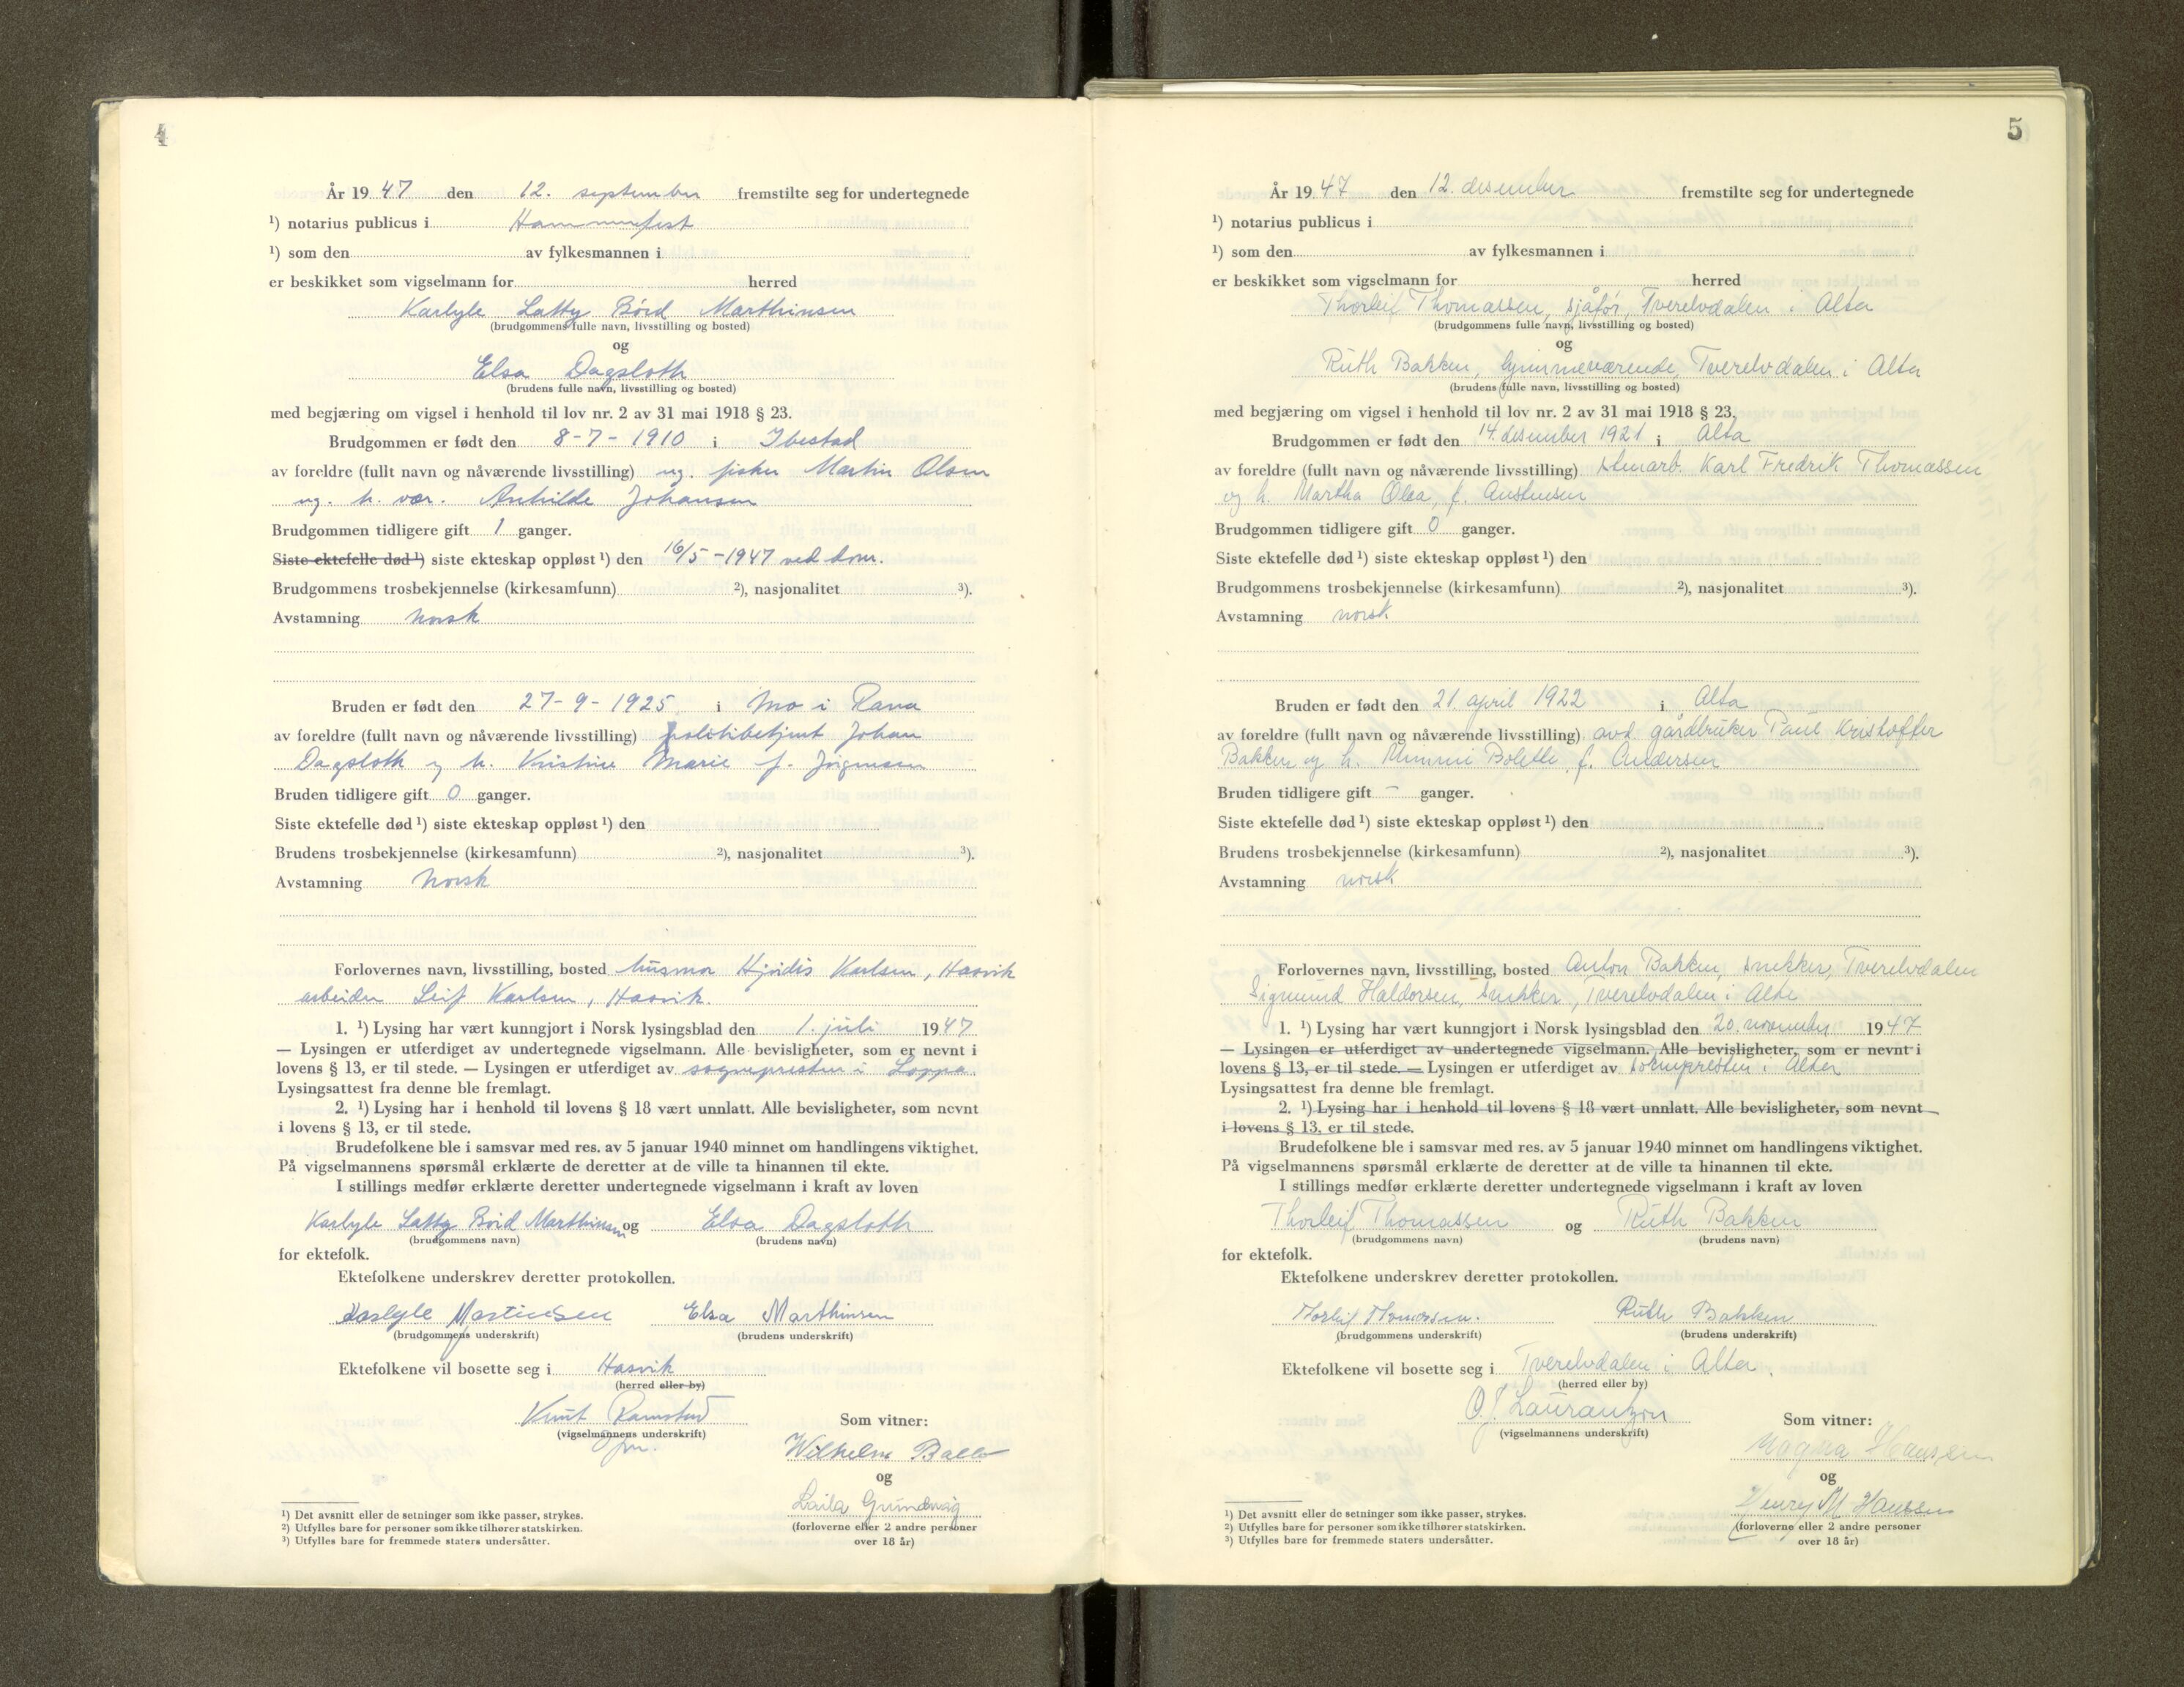 4
År 1947 den 12. september fremstilte seg for undertegnede
¹) notarius publicus i Hammerfest
¹) som den av fylkesmannen i
er beskikket som vigselmann for herred
Karlyle Latty Boid Marthinsen
(brudgommens fulle navn, livsstilling og bosted)
og
Elsa Dagsloth
(brudens fulle navn, livsstilling og bosted)
med begjæring om vigsel i henhold til lov nr. 2 av 31 mai 1918 § 23.
Brudgommen er født den 8-7-1910 i Ibestad
av foreldre (fullt navn og nåværende livsstilling) ug. fisker Martin Olsen
ug. h. vær. Anhilde Johansen
Brudgommen tidligere gift 1 ganger.
Siste ektefelle død ¹) siste ekteskap oppløst ¹) den 16/5-1947 ved dom.
Brudgommens trosbekjennelse (kirkesamfunn) ²), nasjonalitet ³).
Avstamning norsk
Bruden er født den 27-9-1925 i Mo i Rana
av foreldre (fullt navn og nåværende livsstilling) politibetjent Johan
Dagsloth og h. Kristine Marie f. Jørgensen
Bruden tidligere gift 0 ganger.
Siste ektefelle død ¹) siste ekteskap oppløst ¹) den
Brudens trosbekjennelse (kirkesamfunn) ²), nasjonalitet ³).
Avstamning Norsk
Forlovernes navn, livsstilling, bosted husmor Hjørdis Karlsen, Hasvik
arbeider Leif Karlsen, Hasvik.
1. ¹) Lysing har vært kunngjort i Norsk lysingsblad den 1. juli 1947
— Lysingen er utferdiget av undertegnede vigselmann. Alle bevisligheter, som er nevnt i
lovens § 13, er til stede. — Lysingen er utferdiget av sognepresten i Loppa.
Lysingsattest fra denne ble fremlagt.
2. ¹) Lysing har i henhold til lovens § 18 vært unnlatt. Alle bevisligheter, som nevnt
i lovens § 13, er til stede.
Brudefolkene ble i samsvar med res. av 5 januar 1940 minnet om handlingens viktighet.
På vigselmannens spørsmål erklærte de deretter at de ville ta hinannen til ekte.
I stillings medfør erklærte deretter undertegnede vigselmann i kraft av loven
Karlyle Latty Boid Marthinsen og Elsa Dagsloth
(brudgommens navn) (brudens navn)
for ektefolk.
Ektefolkene underskrev deretter protokollen.
Karlyle Martinsen Elsa Marthinsen
(brudgommens underskrift) (brudens underskrift)
Ektefolkene vil bosette seg i Hasvik
(herred eller by)
Knut Ramstad
(vigselmannens underskrift)
Som vitner:
Wilhelm Ballo
og
Laila Grundvåg
(forloverne eller 2 andre personer
over 18 år)
¹) Det avsnitt eller de setninger som ikke passer, strykes.
²) Utfylles bare for personer som ikke tilhører statskirken.
³) Utfylles bare for fremmede staters undersåtter.
5
År 1947 den 12. desember fremstilte seg for undertegnede
¹) notarius publicus i
¹) som den av fylkesmannen i
er beskikket som vigselmann for herred
Thorleif Thomassen, sjåfør, Tverelvdalen i Alta
(brudgommens fulle navn, livsstilling og bosted)
og
Ruth Bakken, hjemmeværende, Tverelvdalen i Alta
(brudens fulle navn, livsstilling og bosted)
med begjæring om vigsel i henhold til lov nr. 2 av 31 mai 1918 § 23.
Brudgommen er født den 14. desember 1921 i Alta
av foreldre (fullt navn og nåværende livsstilling) stenarb. Karl Fredrik Thomassen
og h. Martha Olea, f. Austensen
Brudgommen tidligere gift 0 ganger.
Siste ektefelle død ¹) siste ekteskap oppløst ¹) den
Brudgommens trosbekjennelse (kirkesamfunn) ²), nasjonalitet ³).
Avstamning norsk
Bruden er født den 21 april 1922 i Alta
av foreldre (fullt navn og nåværende livsstilling) avd. gårdbruker Paul Kristoffer
Bakken og h. Mimmi Bolette f. Andersen
Bruden tidligere gift - ganger.
Siste ektefelle død ¹) siste ekteskap oppløst ¹) den
Brudens trosbekjennelse (kirkesamfunn) ²), nasjonalitet ³).
Avstamning norsk
Forlovernes navn, livsstilling, bosted Anton Bakken, snekker, Tverelvdalen
Sigmund Haldorsen, snekker, Tverelvdalen i Alta
1. ¹) Lysing har vært kunngjort i Norsk lysingsblad den 20. november 1947
— Lysingen er utferdiget av undertegnede vigselmann. Alle bevisligheter, som er nevnt i
lovens § 13, er til stede. — Lysingen er utferdiget av sognepresten i Alta
Lysingsattest fra denne ble fremlagt.
2. ¹) Lysing har i henhold til lovens § 18 vært unnlatt. Alle bevisligheter, som nevnt
i lovens § 13, er til stede.
Brudefolkene ble i samsvar med res. av 5 januar 1940 minnet om handlingens viktighet.
På vigselmannens spørsmål erklærte de deretter at de ville ta hinannen til ekte.
I stillings medfør erklærte deretter undertegnede vigselmann i kraft av loven
Thorleif Thomassen og Ruth Bakken
(brudgommens navn) (brudens navn)
for ektefolk.
Ektefolkene underskrev deretter protokollen.
Thorleif Thomassen. Ruth Bakken
(brudgommens underskrift) (brudens underskrift)
Ektefolkene vil bosette seg i Tverelvdalen i Alta.
(herred eller by)
O. J. Laurantzon
(vigselmannens underskrift)
Som vitner:
Magna Hansen
og
Henry M Hanssen
(forloverne eller 2 andre personer
over 18 år)
¹) Det avsnitt eller de setninger som ikke passer, strykes.
²) Utfylles bare for personer som ikke tilhører statskirken.
³) Utfylles bare for fremmede staters undersåtter.